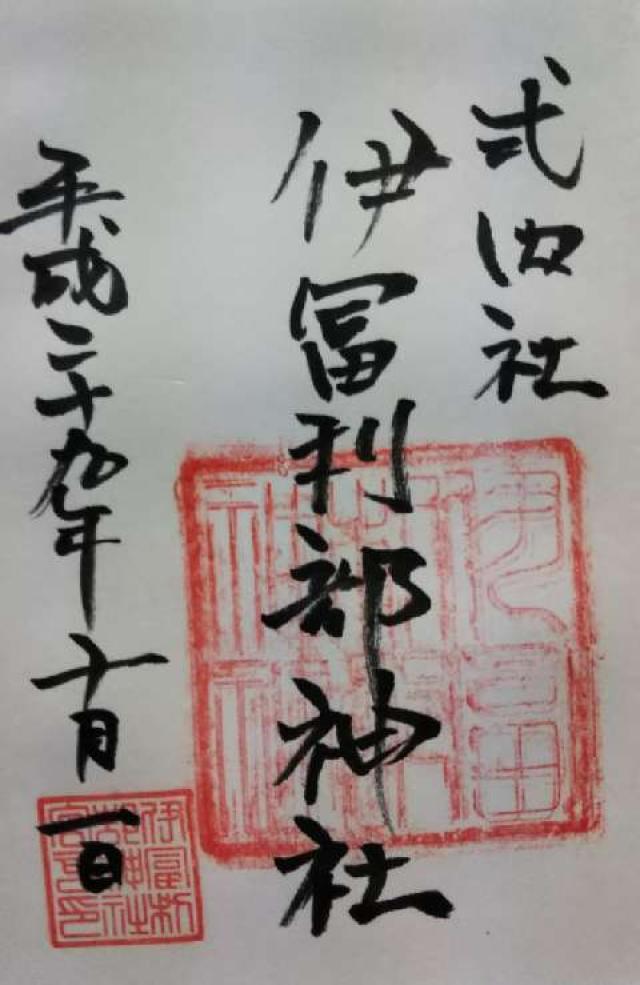 式内社
伊冨利部神社
平成二十九年十一月一日
伊冨利部神社
伊冨利部神社宮司之印